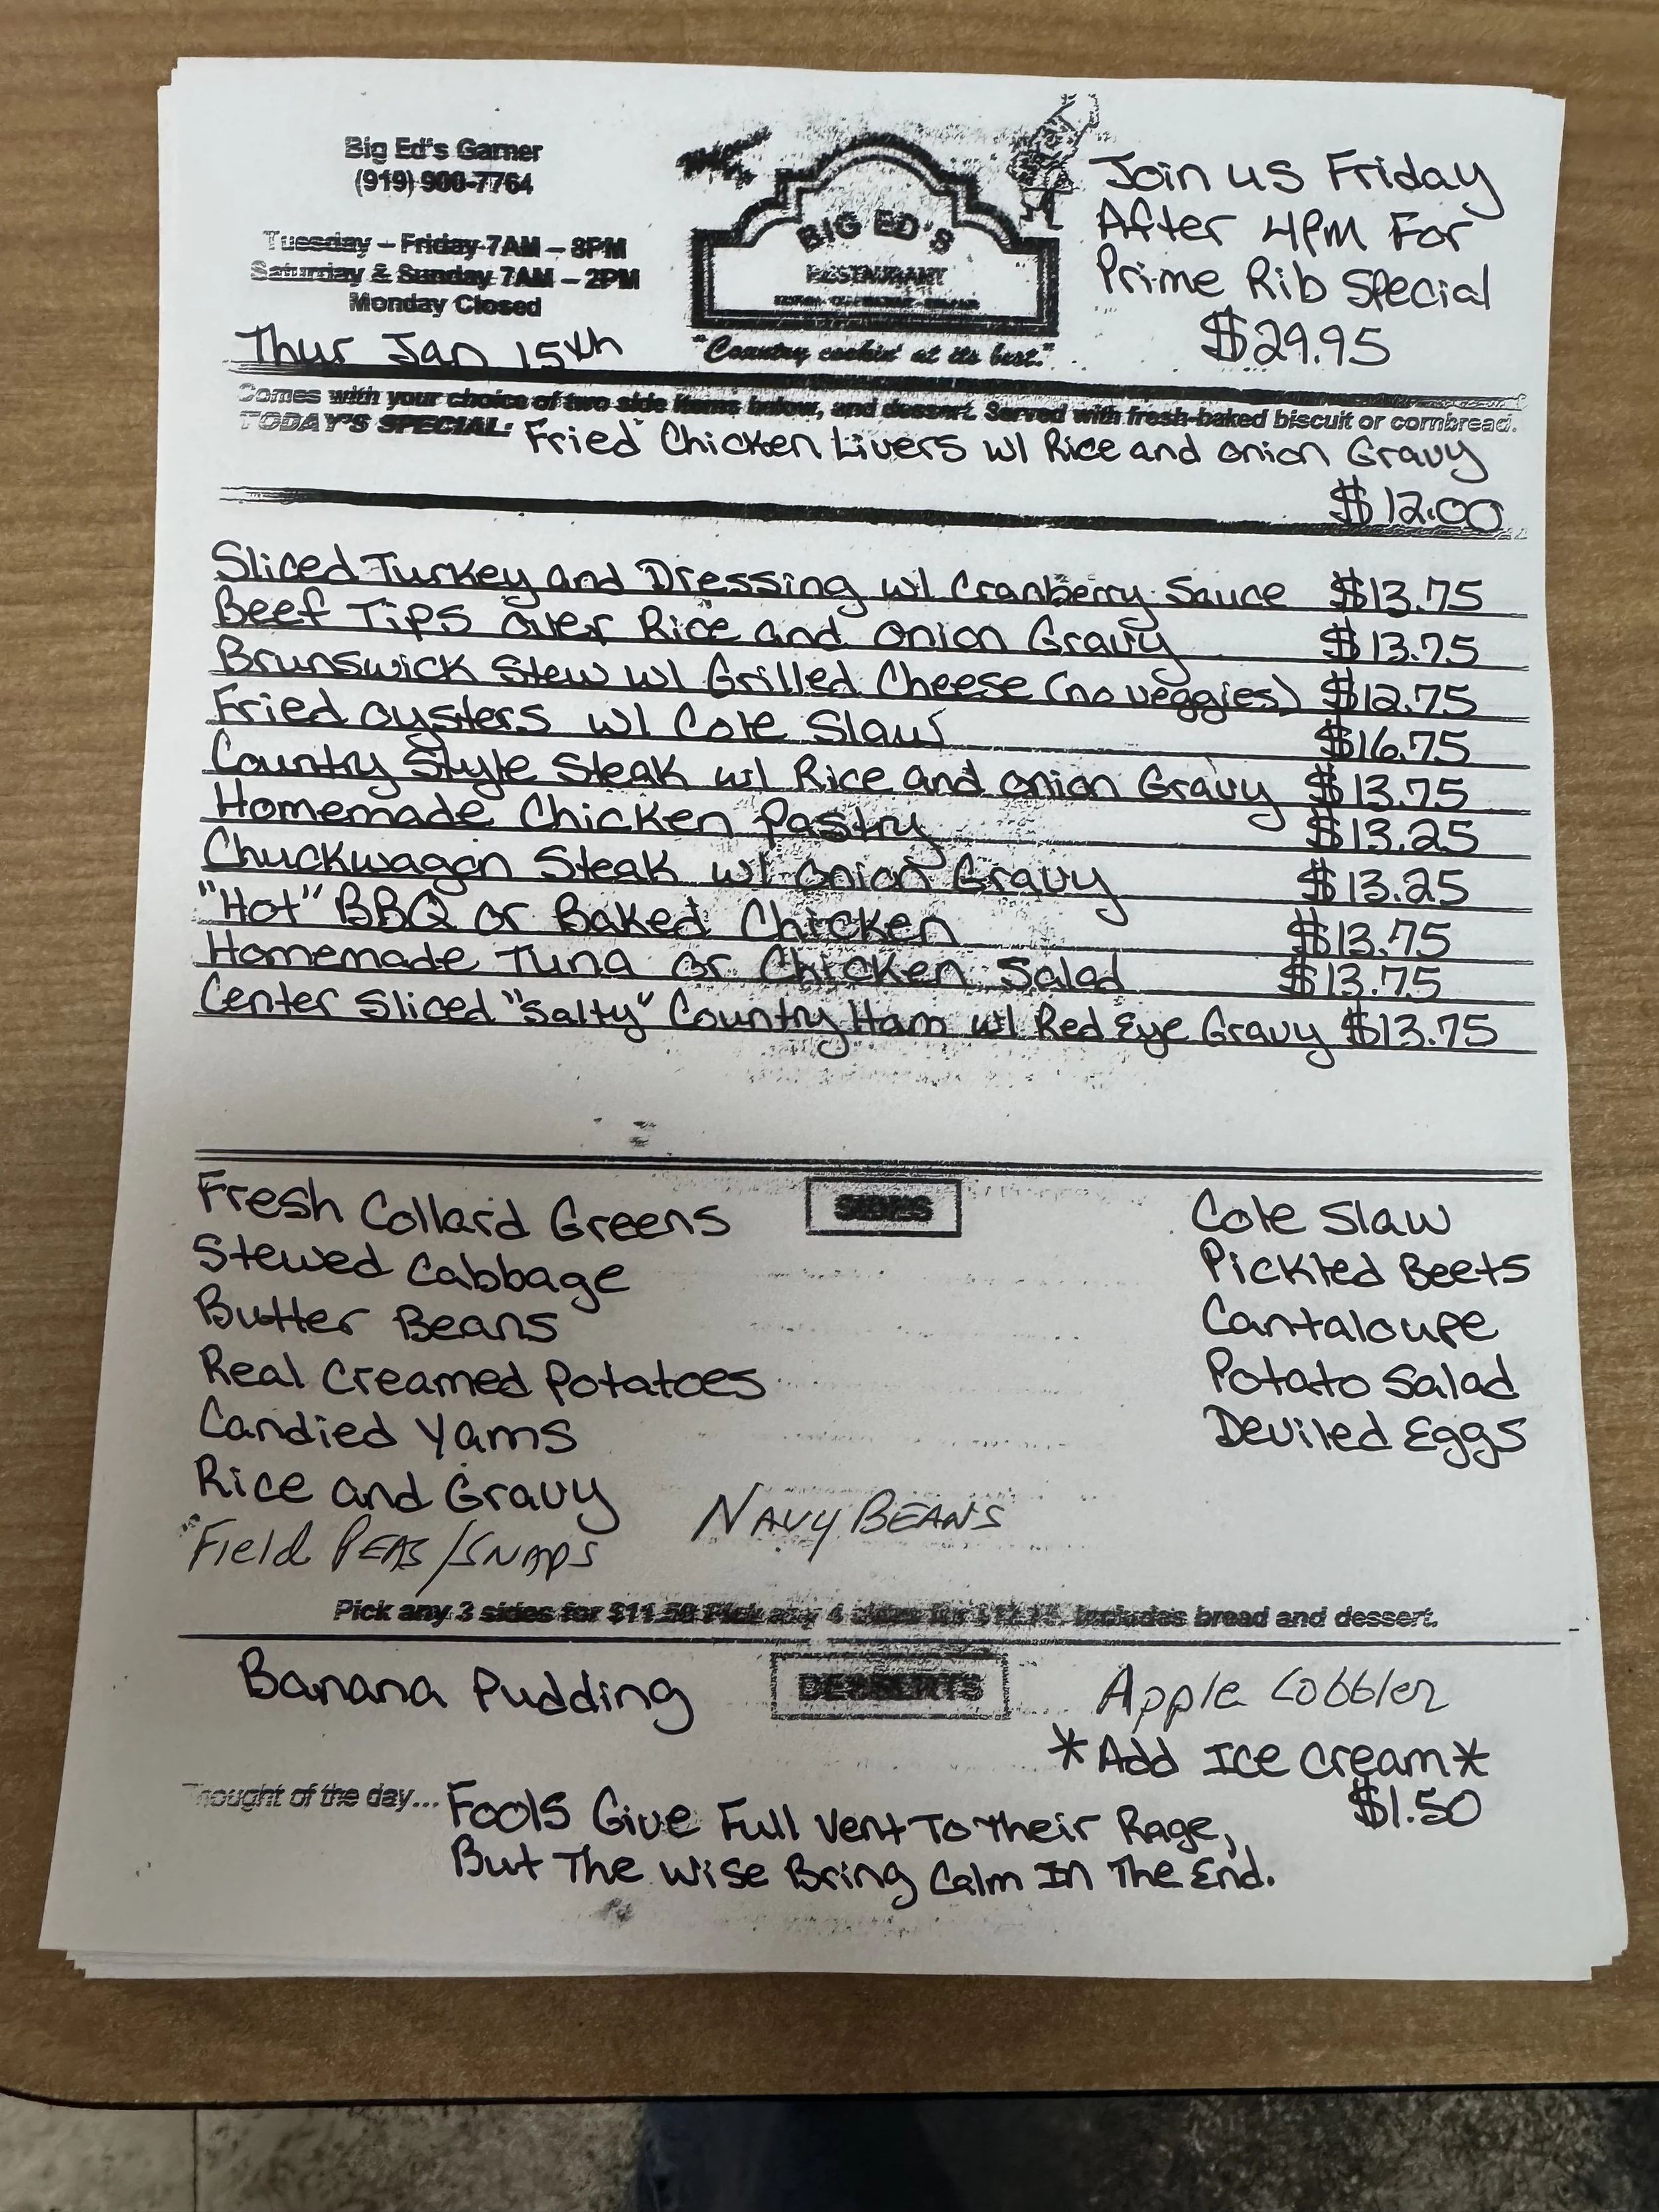 Big Ed's Garner
(919) 900-7764
Tuesday – Friday 7AM – 8PM
Saturday & Sunday 7AM – 2PM
Monday Closed
Thur Jan 15th
BIG ED'S
RESTAURANT
"Country cookin' at its best."
Join us Friday
After 4pm For
Prime Rib Special
$29.95
Comes with your choice of two side items below, and dessert. Served with fresh-baked biscuit or cornbread.
TODAY'S SPECIAL: Fried Chicken Livers w/ Rice and onion Gravy
$12.00
Sliced Turkey and Dressing w/ Cranberry Sauce $13.75
Beef Tips over Rice and onion Gravy $13.75
Brunswick Stew w/ Grilled Cheese (no veggies) $12.75
Fried oysters w/ Cole Slaw $16.75
Country Style Steak w/ Rice and onion Gravy $13.75
Homemade Chicken Pastry $13.25
Chuckwagon Steak w/ onion Gravy $13.25
"Hot" BBQ or Baked Chicken $13.75
Homemade Tuna or Chicken Salad $13.75
Center Sliced "Salty" Country Ham w/ Red Eye Gravy $13.75
SIDES
Fresh Collard Greens
Stewed Cabbage
Butter Beans
Real Creamed Potatoes
Candied Yams
Rice and Gravy
Field PEAS/SNAPS
NAVY BEANS
Cole Slaw
Pickled Beets
Cantaloupe
Potato Salad
Deviled Eggs
Pick any 3 sides for $11.50 Pick any 4 sides for includes bread and dessert.
DESSERTS
Banana Pudding
Apple Cobbler
*Add Ice Cream*
$1.50
Thought of the day... Fools Give Full Vent To Their Rage,
But The Wise Bring Calm In The End.